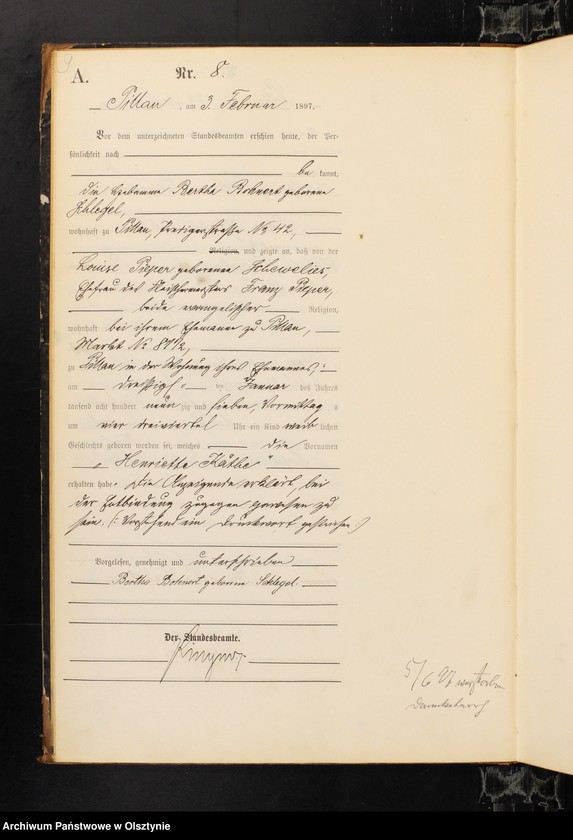 9
A.
Nr. 8.
Pillau, am 3. Februar 1897.
Vor dem unterzeichneten Standesbeamten erschien heute, der Per-
sönlichkeit nach
be kannt,
die Hebamme Bertha Bohnert geborene
Schlegel,
wohnhaft zu Pillau, Predigerstraße No 42,
Religion, und zeigte an, daß von der
Louise Pieper geborenen Schewelies,
Ehefrau des Fleischermeisters Franz Pieper,
beide evangelischer Religion,
wohnhaft bei ihrem Ehemanne zu Pillau,
Markt No
zu Pillau in der Wohnung ihres Ehemannes,
am dreißigsten Januar des Jahres
tausend acht hundert neunzig und sieben, Vormittags
um vier dreiviertel Uhr ein Kind weiblichen
Geschlechts geboren worden sei, welches die Vornamen
„Henriette Käthe"
erhalten habe. Die Anzeigende erklärt, bei
der Entbindung zugegen gewesen zu
sein. (: Vorstehend ein Druckwort gestrichen.:)
Vorgelesen, genehmigt und unterschrieben
Bertha Bohnert geborene Schlegel.
Der Standesbeamte.
5/6 97 verstorben
Archiwum Państwowe w Olsztynie